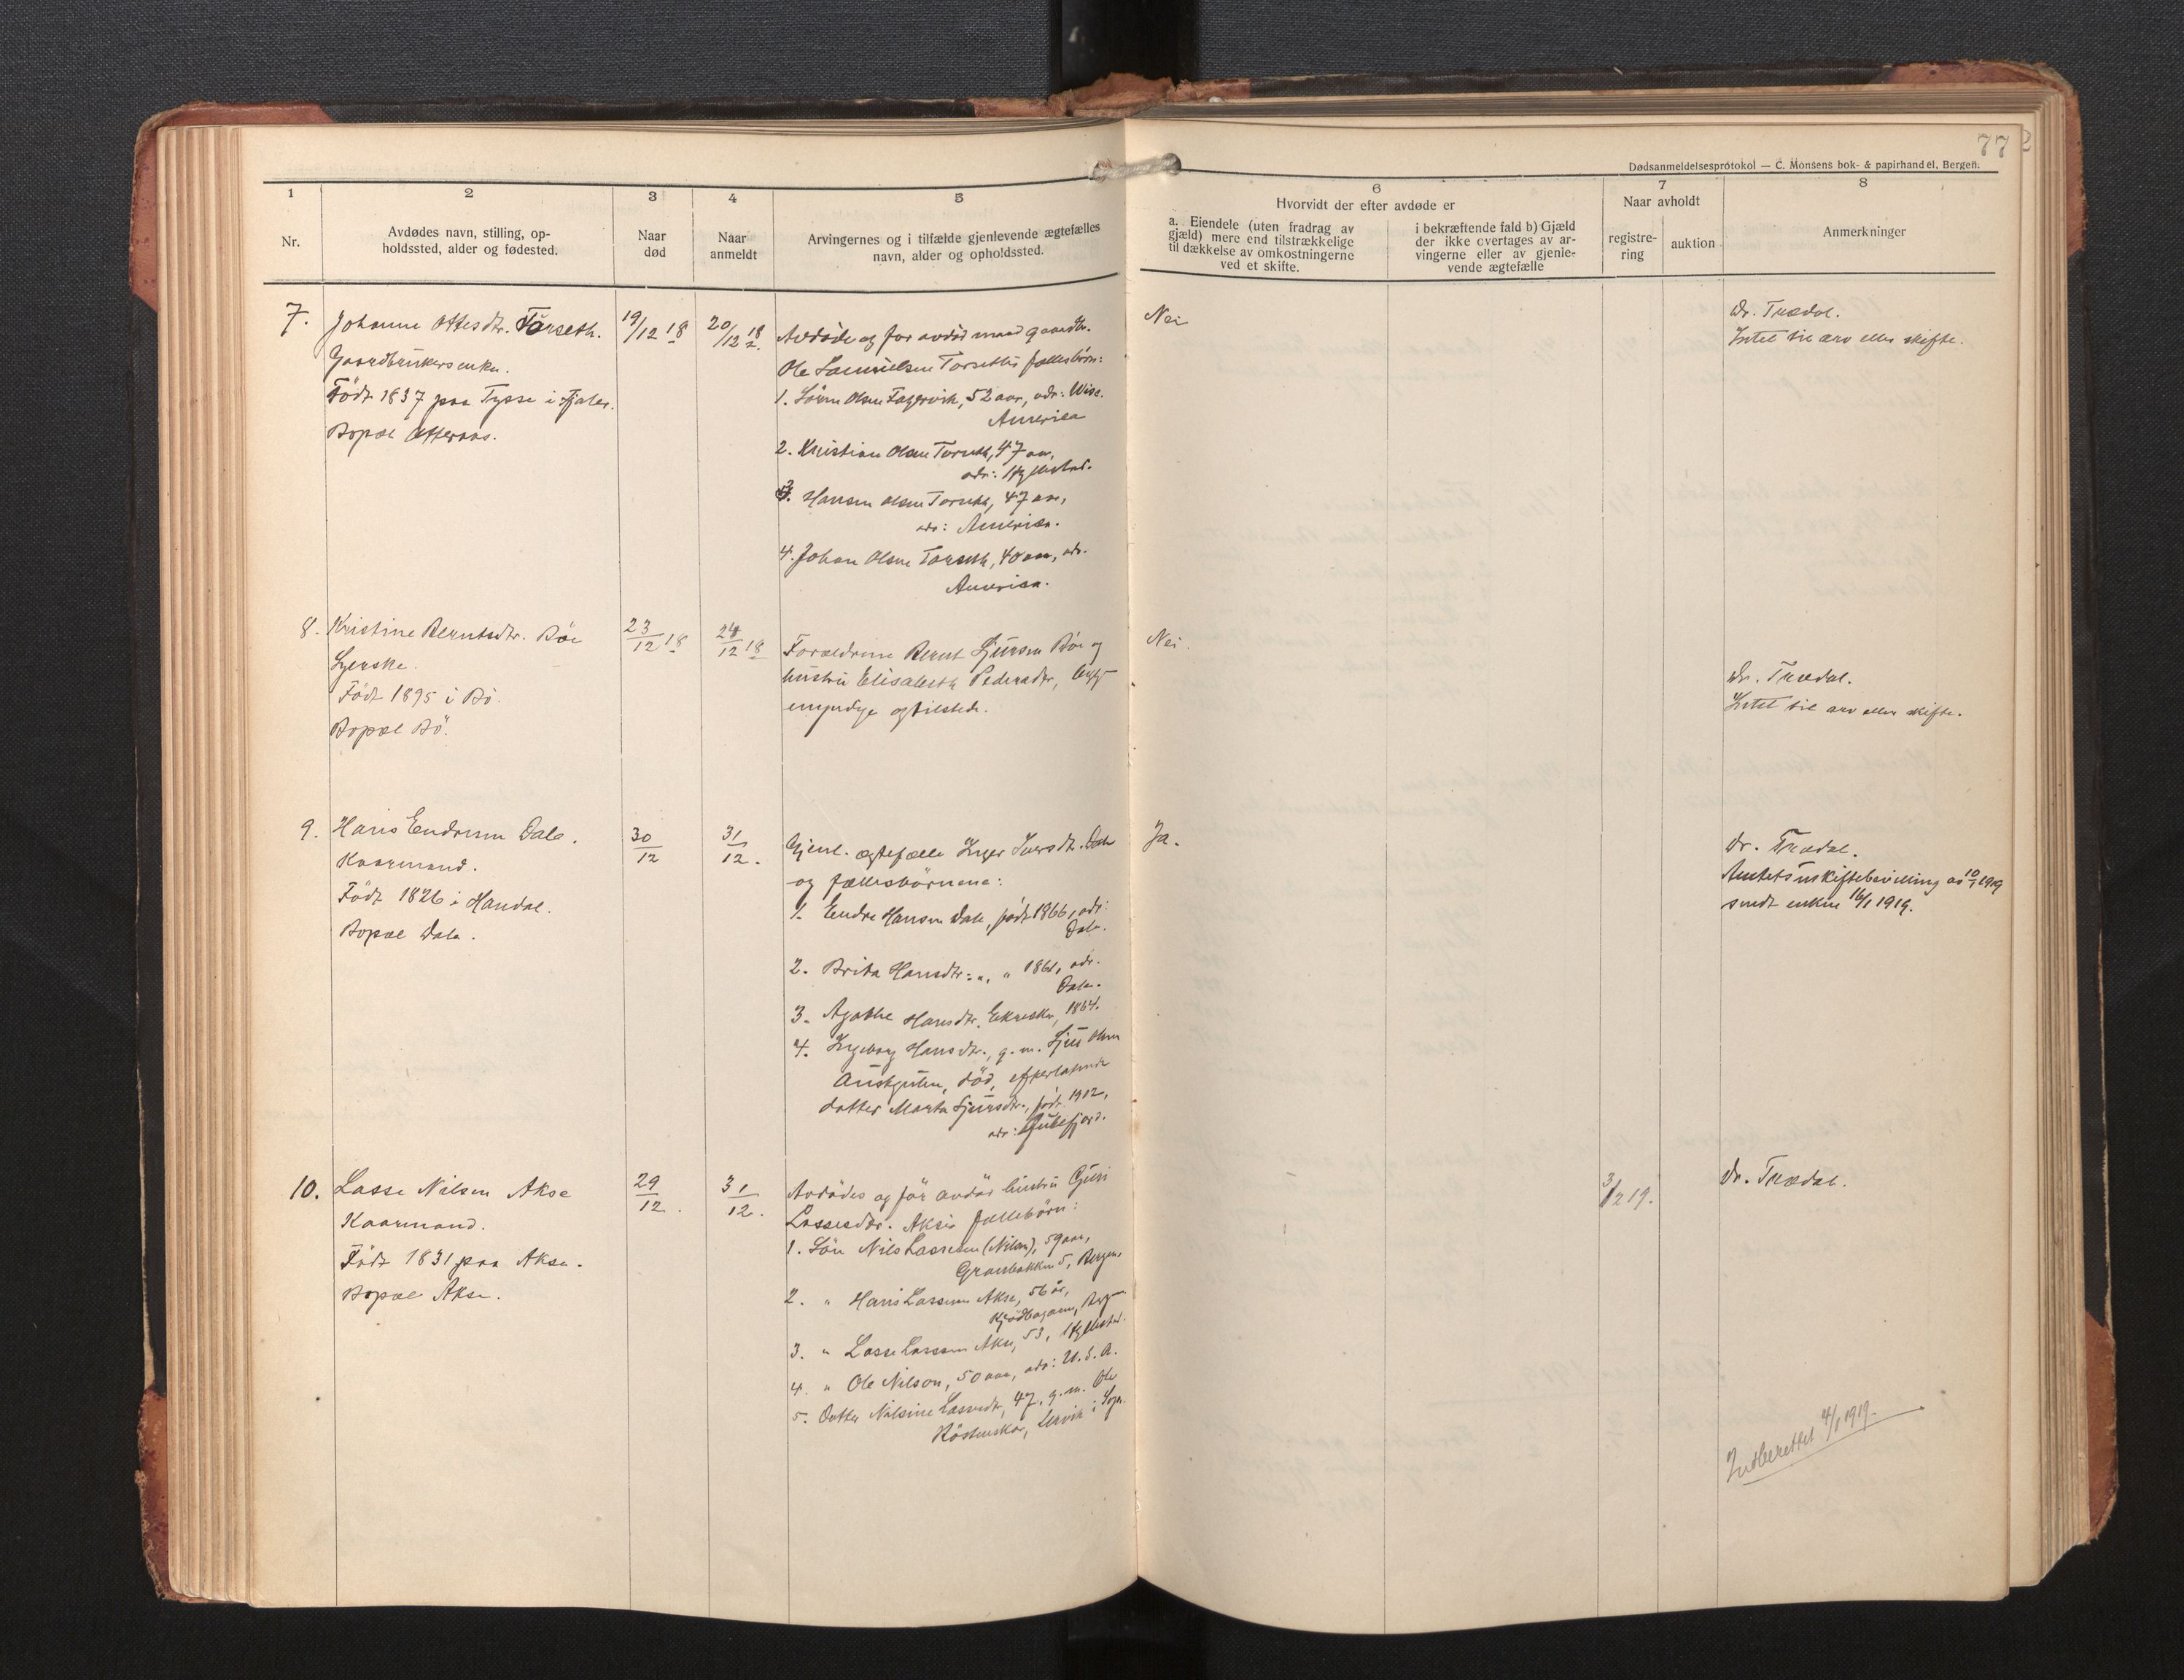 77
Dødsanmeldelsesprotokol — C. Monsens bok- & papirhandel, Bergen.
1
Nr.
2
Avdødes navn, stilling, op-
holdssted, alder og fødested.
3
Naar
død
4
Naar
anmeldt
5
Arvingernes og i tilfælde gjenlevende ægtefælles
navn, alder og opholdssted.
6
Hvorvidt der efter avdøde er
a. Eiendele (uten fradrag av
gjæld) mere end tilstrækkelige
til dækkelse av omkostningerne
ved et skifte.
i bekræftende fald b) Gjæld
der ikke overtages av ar-
vingerne eller av gjenle-
vende ægtefælle
7
Naar avholdt
registre-
ring
auktion
8
Anmerkninger
7.
Johanne Ottesdtr. Torseth.
Gaardbrukersenke.
Født 1837 paa Tysse i Fjaler.
Bopæl Otteraas.
19/12 18
20/12 18
Avdøde og før avdød mand gaardbr.
Ole Samuelsen Torseths fællesbørn:
1. Sören Olsen Fagervik, 52 aar, adr: Wisc.
America
2. Kristian Olsen Torseth, 47 aar,
adr: Hyllestad.
3. Hansen Olsen Torseth, 47 aar,
adr: America.
4. Johan Olsen Torseth, 40 aar, adr.
America.
Nei
Dr. Trædal.
Intet til arv eller skifte.
8.
Kristine Berntsdtr. Böe
Syerske.
Født 1895 i Bö.
Bopæl Bö.
23/12 18
24/12 18
Forældrene Bernt Sjursen Böe og
hustru Elisabeth Pedersdtr,
myndige og tilstede.
Nei.
Dr. Trædal.
Intet til arv eller skifte.
9.
Hans Endresen Dale.
Kaarmand.
Født 1826 i Handal.
Bopæl Dale.
30/12
31/12.
Gjenl. ægtefælle Inger Iversdtr. Dale
og fællesbörnene:
1. Endre Hansen Dale, født 1866, adr:
Dale.
2. Brita Hansdtr: " " 1861, adr.
Dale.
3. Agathe Hansdtr. 1864.
4. Ingeborg Hansdtr., g. m. Sjur Olsen
død, efterlatende
datter Marta Sjursdtr., født 1902,
adr:
Ja.
Dr. Trædal.
Amtets uskiftebevilling av 10/1 1919
sendt enken 16/1 1919.
10.
Lasse Nilsen Akse
Kaarmand.
Født 1831 paa Akse.
Bopæl Akse.
29/12.
31/12.
Avdødes og før avdød hustru Guri
Lassesdtr. Akses fællebörn:
1. Sön Nils Lassesen (Nilsen), 59 aar,
5, Bergen
2. " Hans Lassesen Akse, 56 år,
Bergen
3. " Lasse Lassesen Akse, 53, Hyllestad.
4. " Ole Nilson, 50 aar, adr: U. S. A.
5. Datter Nilsine Lassesdtr, 47, g. m. Ole
Lervik i Sogn.
3/2 19.
Dr. Trædal.
Indberettet 4/1 1919.